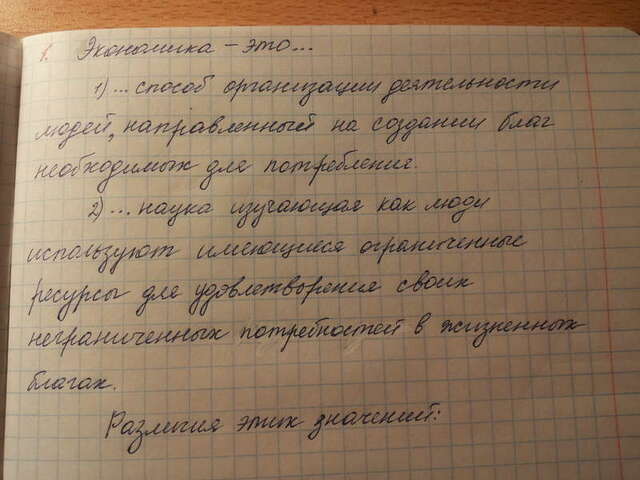 1. Экономика – это...
1) ... способ организации деятельности
людей, направленный на создании благ
необходимых для потребления.
2) ... наука изучающая как люди
используют имеющиеся ограниченные
ресурсы для удовлетворения своих
неграниченных потребностей в жизненных
благах.
Различия этих значений: